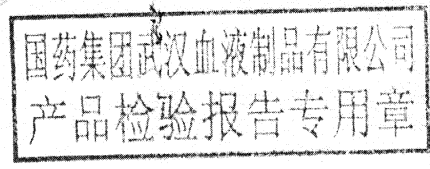 国药集团武汉血液制品有限公司
产品检验报告专用章